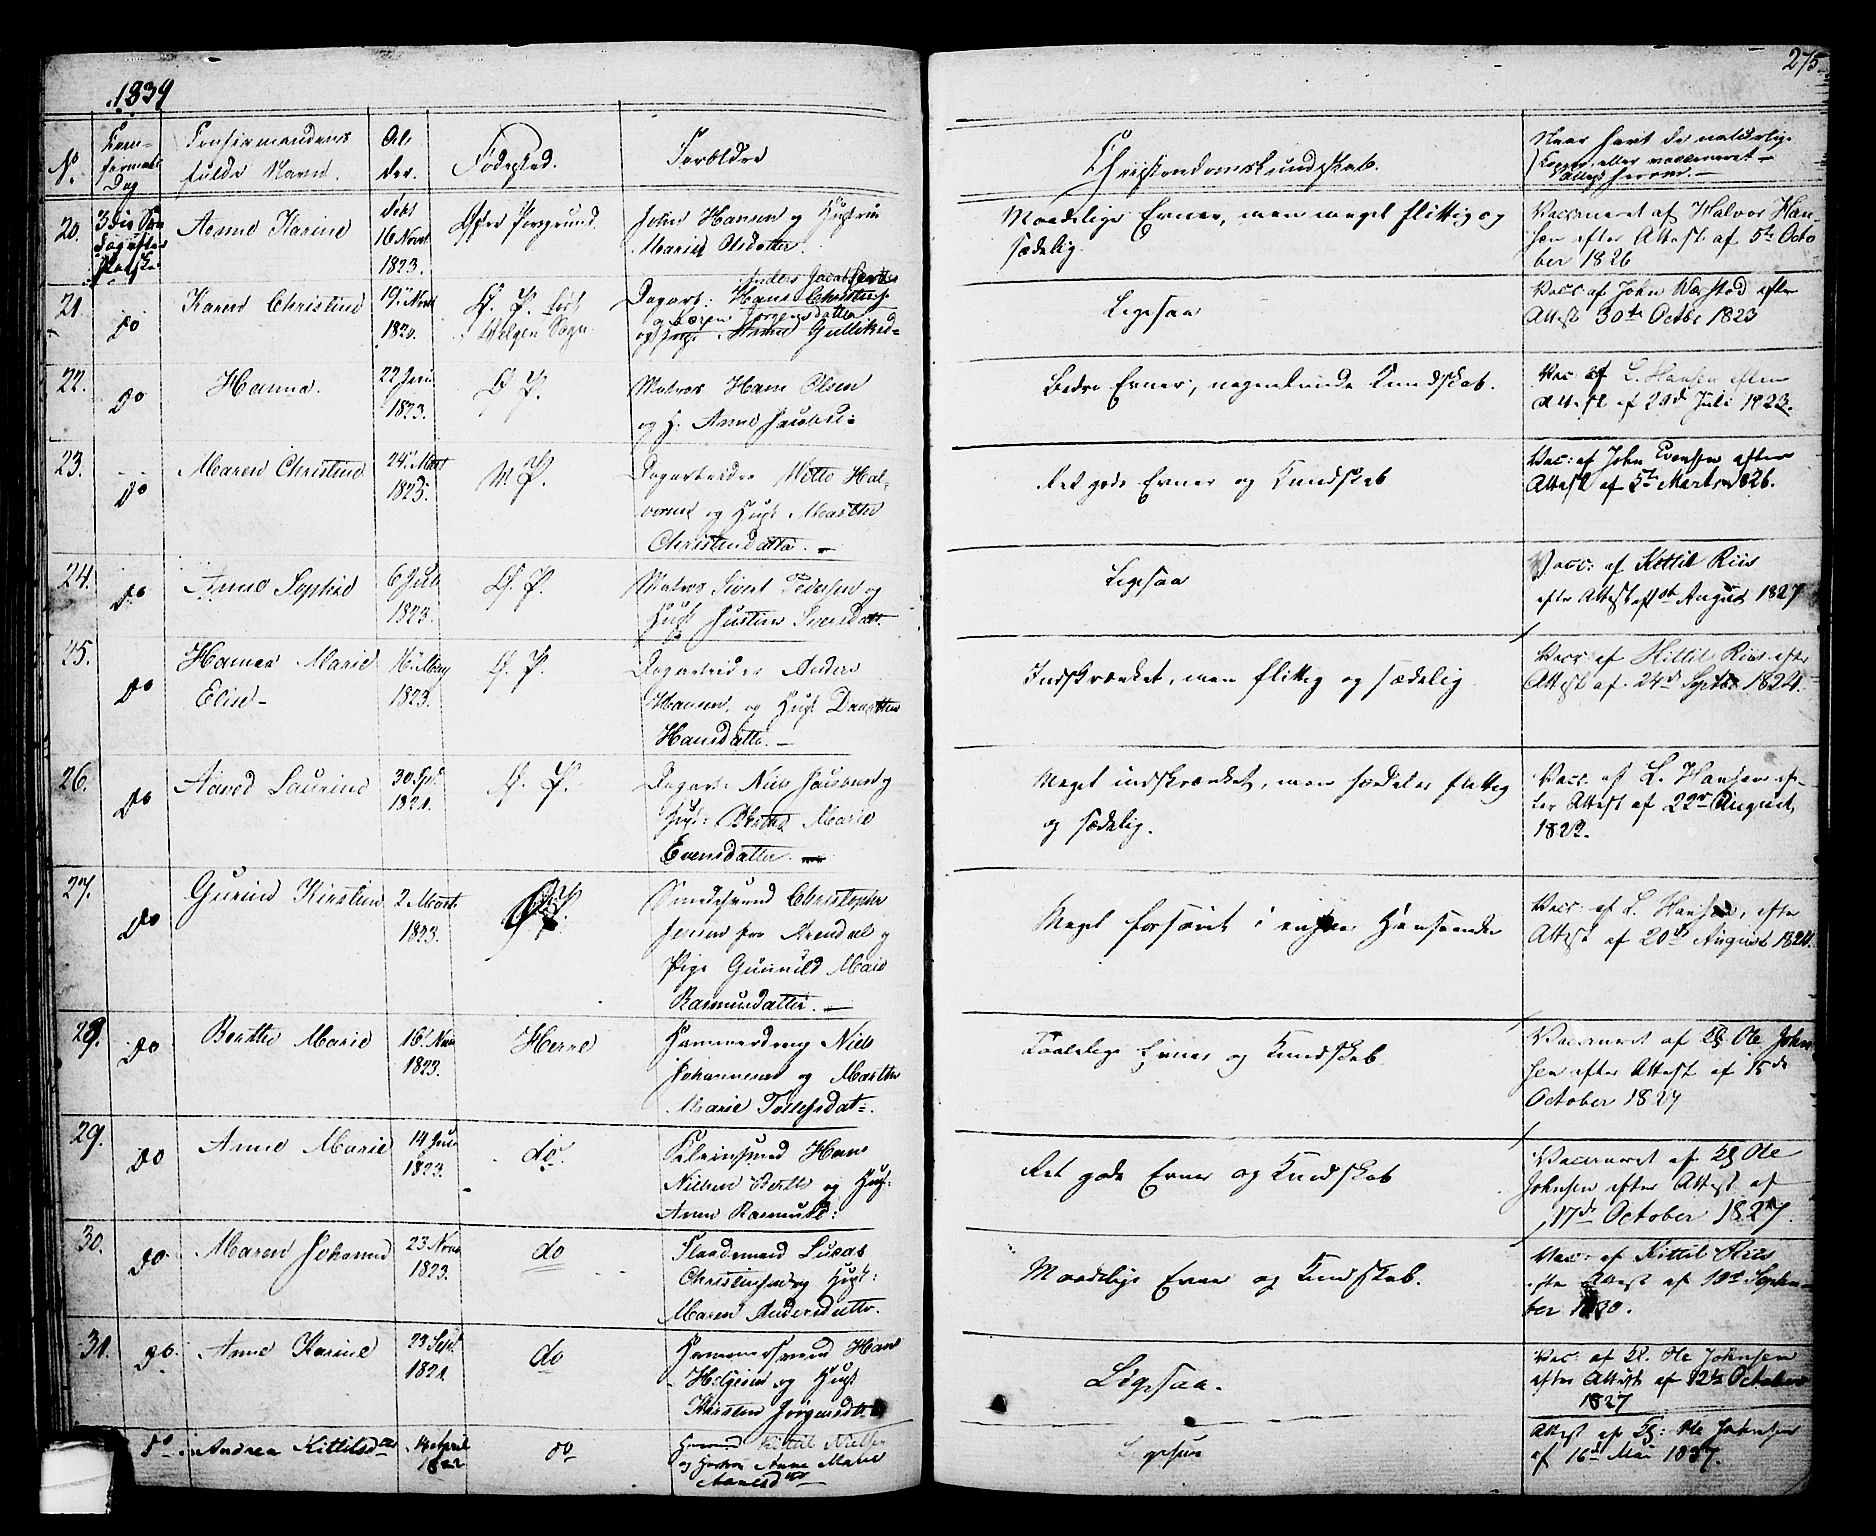 1839
275
No.
Confirmandens
fulde Navn.
Al-
der.
Fødested.
Forældre
Christendomskundskab.
Naar havt de naturlige
Kopper eller vaccineret
20.
Anne Karine
født
16 Novb
1823.
Østre Porsgrund.
John Hansen og Hustrue
Maria Olsdatter.
Maadelige Evner, men meget flittig og
sædelig.
Vaccineret af Halvor Han-
sen efter Attest af 5te Octo
ber 1826
21.
do
Karen Christine
19 Novb
1820.
Ø. P. født
i Solgen Sogn.
Anders Jacobsen
Dagarb: Hans Christens
Jørgensdatter
og Anne Gulliksd
Ligesaa
Vacc af John Norstad efter
Attest 30te Octbr 1823
22.
do
Hanna.
22 Juni
1823.
Ø P.
Matros Hans Olsen
og H. Anne Jacobsd:
Bedre Evner, nogenlunde Kundskab.
Vac: af L. Hansen efter
Attest af 29de Juli 1823.
23.
do
Maren Christine
24 Mart
1823.
W P.
Dagarbeider Hal-
vorsen og Hust Marthe
Christensdatter.
Ret gode Evner og Kundskab
Vac: af John Evensen efter
Attest af 5te Marts 1826.
24.
do
Anne Sophie
6 Juli
1823.
Ø. P.
Matros Sivert Pedersen og
Hust Justine Sversdatt.
Ligesaa
Vacc: af Kittil Riis
efter Attest af August 1827
25.
do
Hanna Marie
Elise
16 May
1823.
Ø. P.
Dagarbeider Anders
Hansen, og Hust Dorthe
Hansdatter.
Indskrænket, men flittig og sædelig
Vacc: af Kittil Riis efter
Attest af 24de Septbr 1824.
26.
do
Laurine
30 Spt.
1821.
Ø. P.
Dagarb: Niels Jacobsen og
Hust: Berthe Marie
Evensdatter.
Meget indskrænket, men særdeles flittig
og sædelig.
Vacc. af L. Hansen ef-
ter Attest af 22de August
1822.
27.
do
Gurine Kirstine
2 Marts
1823.
Ø. P.
Smedesvend Christopher
Jensen fra Arendal og
Pige Gunnild Marie
Rasmusdatter.
Meget forsømt i enhver Henseende
Vacc: af L. Hansen, efter
Attest af 20de August 1824.
28.
do
Berthe Marie
16 Nov
1823.
Herre
Hammerdreng Niels
Johannesen og Marthe
Marie Tollefsdat.
Taalelige Evner og Kundskab
Vaccineret af Kl Ole John
sen efter Attest af 15de
October 1827
29.
do
Anne Marie
14 Juni
1823.
do.
Hans
Nielsen Berthe og Hust
Anne Rasmusd:
Ret gode Evner og Kundskab
Vaccineret af Kl Ole
Johnsen efter Attest af
17de October 1827.
30.
do
Maren Johanne
23 Nov
1823.
do
Strandmand Lucas
Christensen og Hust:
Maren Andersdatter.
Maadelige Evner og Kundskab.
Vac: af Kittil Riis
efter Attest af 10de Septem-
ber 1830.
31.
do.
Anne Karine
23 Sept.
1821.
do
Hammersvend Hans
Helgesen og Hust
Kirsten Jørgensdt.
Ligesaa.
Vac: af Kl. Ole Johnsen
efter Attest af 12te October
1827
do
Andrea Kittilsdtr
14 April
1822
do
Kittil Nielsen
og Hustru Anne Marie
Ligesaa
Attest af Kl: Ole Johnsen
af 16de Mai 1837.